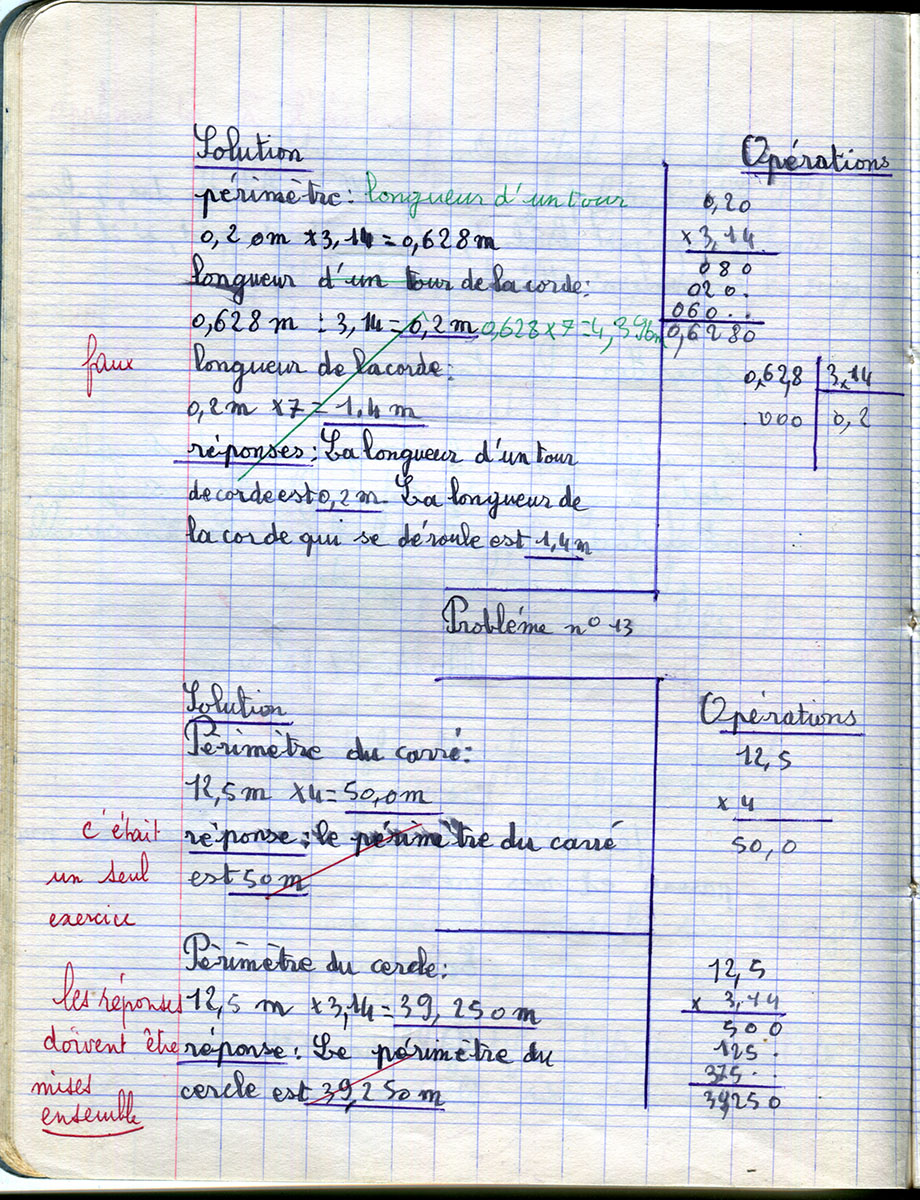 Solution
périmètre: longueur d'un tour
0,20m × 3,14 = 0,628 m
longueur d'un tour de la corde:
0,628 m : 3,14 = 0,2 m 0,628 × 7 = 4,396m
faux
longueur de la corde:
0,2m × 7 = 1,4 m
réponses: La longueur d'un tour
de corde est 0,2 m. La longueur de
la corde qui se déroule est 1,4 m
Opérations
0,20
× 3,14
080
020.
060..
0,6280
0,628 3,14
000 0,2
Probléme n° 13
Solution
Périmètre du carré:
12,5 m × 4 = 50,0 m
réponse: le périmètre du carré
est 50 m
c'était
un seul
exercice
Opérations
12,5
× 4
50,0
Périmètre du cercle:
12,5 m × 3,14 = 39,250 m
réponse: Le périmètre du
cercle est 39,250 m
les réponses
doivent être
mises
ensemble
12,5
× 3,14
500
125.
375..
39,250